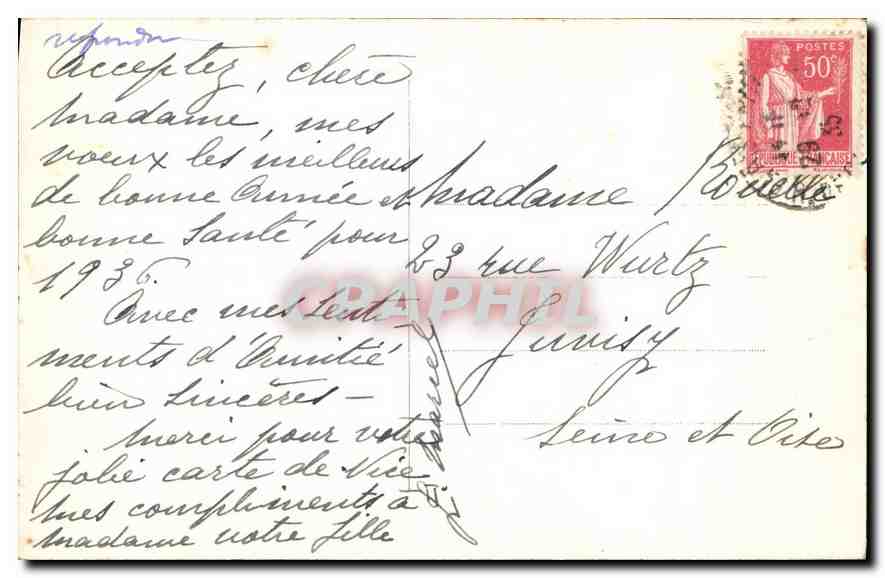 repondu
Acceptez, chère
Madame, mes
voeux les meilleurs
de bonne Année et
bonne Santé pour
1936.
Avec mes senti-
ments d'Amitié
bien Sincères -
Merci pour votre
jolie carte de Nice
mes compliments à
Madame votre fille
Madame
23 rue Wurtz
Juvisy
Seine et Oise
POSTES
50c
29
35
CPAPHIL